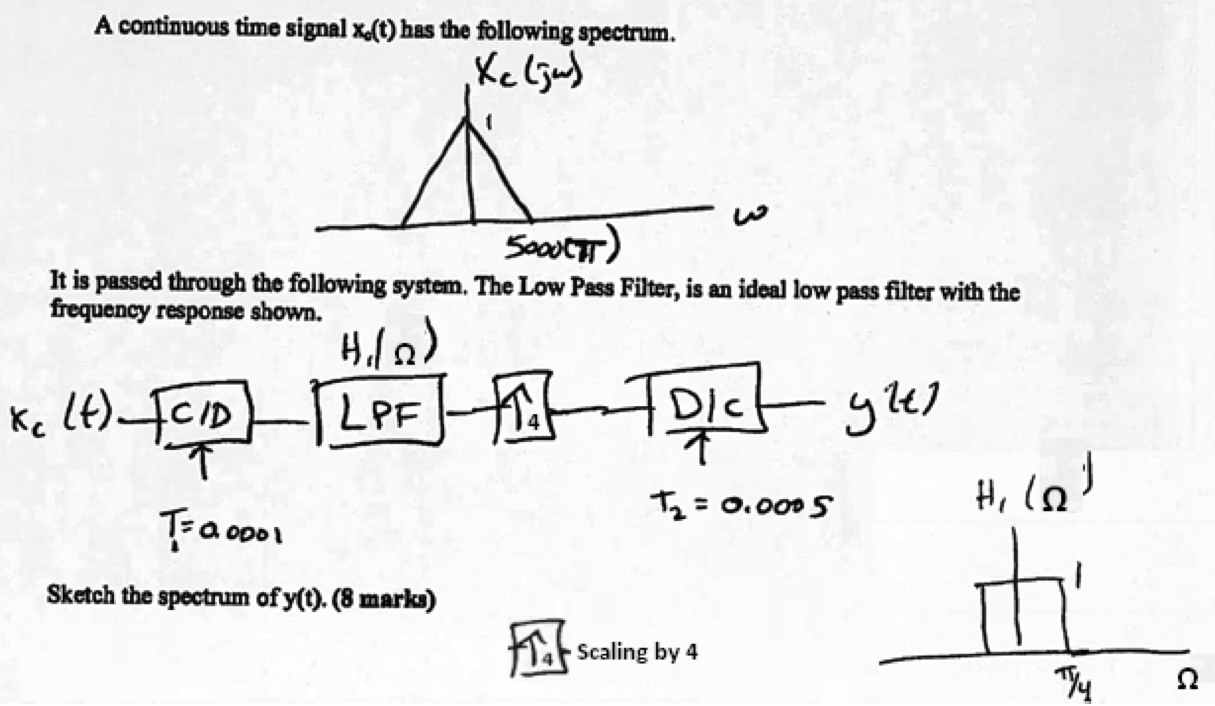 A continuous time signal x_c(t) has the following spectrum.
X_c(jω)
1
ω
5000(π)
It is passed through the following system. The Low Pass Filter, is an ideal low pass filter with the
frequency response shown.
H_1(Ω)
x_c(t) C/D LPF ↑4 D/C y(t)
T_1=0.0001
T_2 = 0.0005
H_1(Ω)
1
π/4
Ω
Sketch the spectrum of y(t). (8 marks)
↑4 Scaling by 4